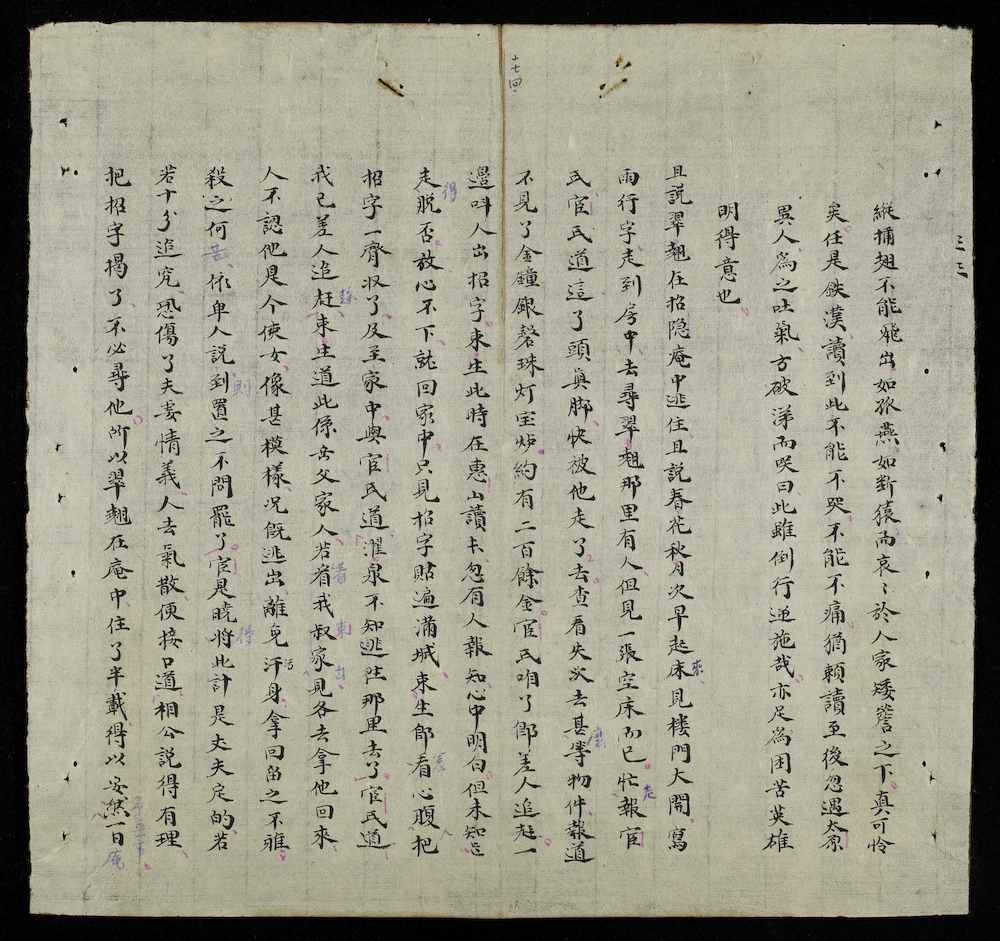 三三
十七回
縱插翅不能飛出如孤燕如斷猿而哀〻於人家矮簷之下真可怜
矣任是鉄漢讀到此不能不哭不能不痛猶頼讀至後忽遇太原
異人為之吐氣方破涕而咲曰此雖倒行逆施哉亦足為困苦英雄
明得意也
且説翠翹在招隐庵中逃住且説春花秋月次早起床來見楼門大開寫
兩行字走到房中去尋翠翹那里有人但見一張空床而已忙走報宦
氏宦氏道這了頭眞脚快被他走了去查看失少去甚麼等物件報道
不見了金鐘銀磬珠灯宝炉約有二百餘金宦氏咱了郎差人追赶一
邉呌人出招字束生此時在惠山讀卡忽有人報知心中明白但未知他
走脱得否放心不下就回家中只見招字貼遍滿城束生郎着心腹把
招字一齊収了及至家中與宦氏道濯泉不知逃往那里去了宦氏道
我已差人追赶束生道此係岳父家人若着我叔家見各去拿他回來
人不認他是今使女像甚模様况既逃出離免汙身拿回畄之不雅
殺之何苦依卑人説到置之不問罷了宦是曉得將此計是丈夫定的若
若十分追究恐傷了夫妻情義人去氣散便接口道相公説得有理
把招字揭了不必尋他所以翠翹在庵中住了半載得以安然一日庵